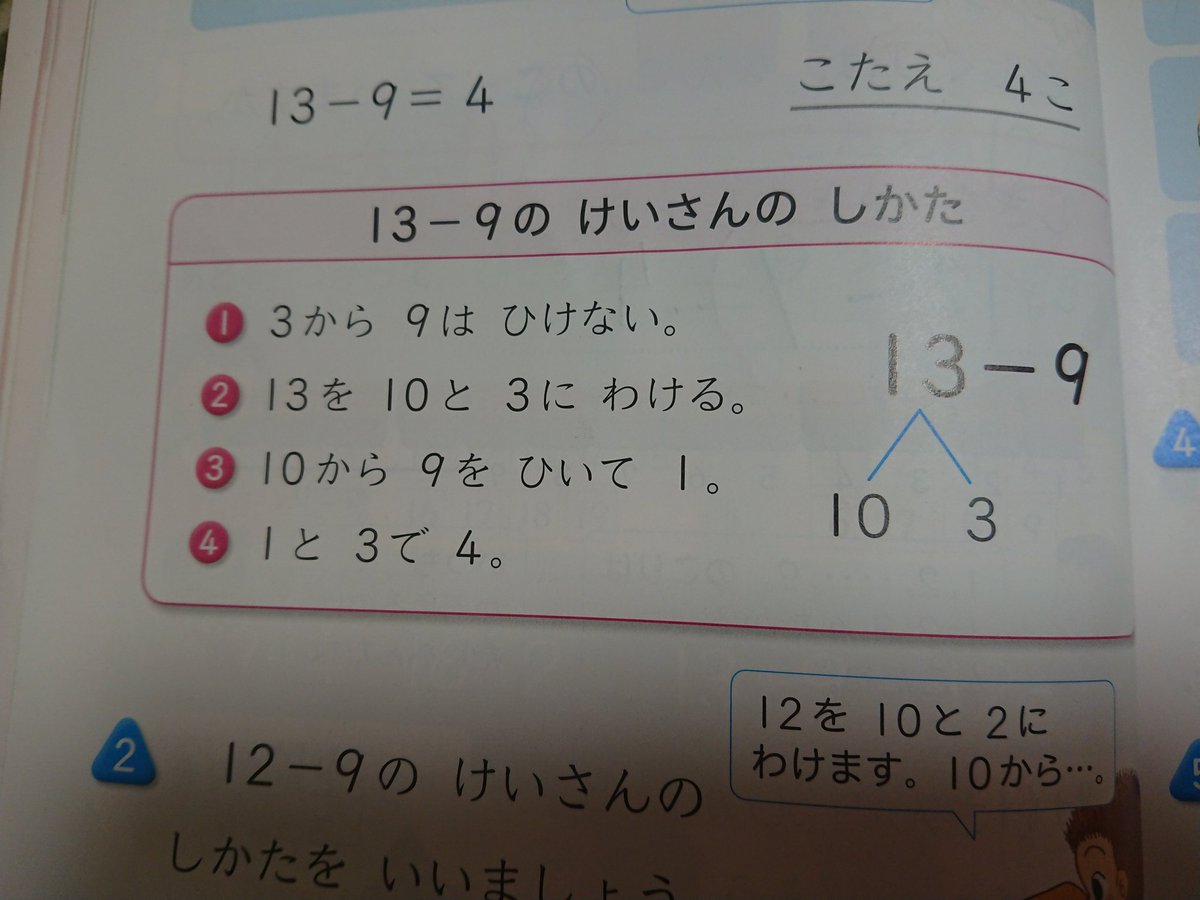 13-9=4
こたえ 4こ
13-9の けいさんの しかた
1 3から 9は ひけない。
2 13を 10と 3に わける。
3 10から 9を ひいて 1。
4 1と 3で 4。
13-9
10 3
2 12-9の けいさんの
しかたを いいましょう
12を 10と 2に
わけます。10から…。
4
5